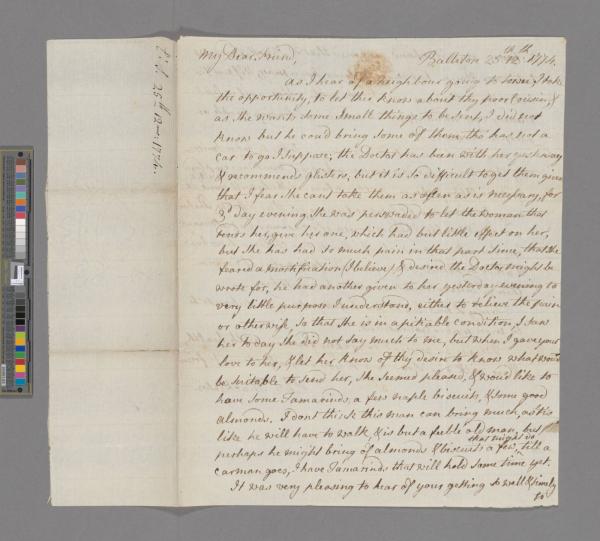 My Dear Friend,
Ballitore 25th 12mo 1774.
as I hear of a neighbour going to town, I take
the opportunity, to let thee know about thy poor Cousin, &
as she wants some small things to be sent, I did not
know but he coud bring some of them, tho' has not a
car to go I suppose; the Doctor has been with her yesterday
& recommends glisters, but it is so difficult to get them given
that I fear she cant take them as often as is necessary, for
3d day evening she was perswaded to let the woman that
tends her, give her one, which had but little effect on her,
but she has had so much pain in that part since, that she
feared a mortification (I believe) & desired the Doctor might be
wrote for, he had another given to her yesterday evening to
very little purpose I understand, either to relieve the pain
or otherwise, so that she is in a pitiable condition, I saw
her to day she did not say much to me, but when I gave your
love to her, & let her know of thy desire to know what wou'd
be suitable to send her, she seemed pleased, & wou'd like to
have some Tamarinds, a few naple biscuits, & some good
almonds. I dont think this man can bring much, as tis
like he will have to walk, & is but a feeble old man, but
perhaps he might bring of almonds & biscuits a few, that might do till a
carman goes, I have Tamarinds that will hold some time yet.
It was very pleasing to hear of your getting so well & timely
to
12mo 1774.